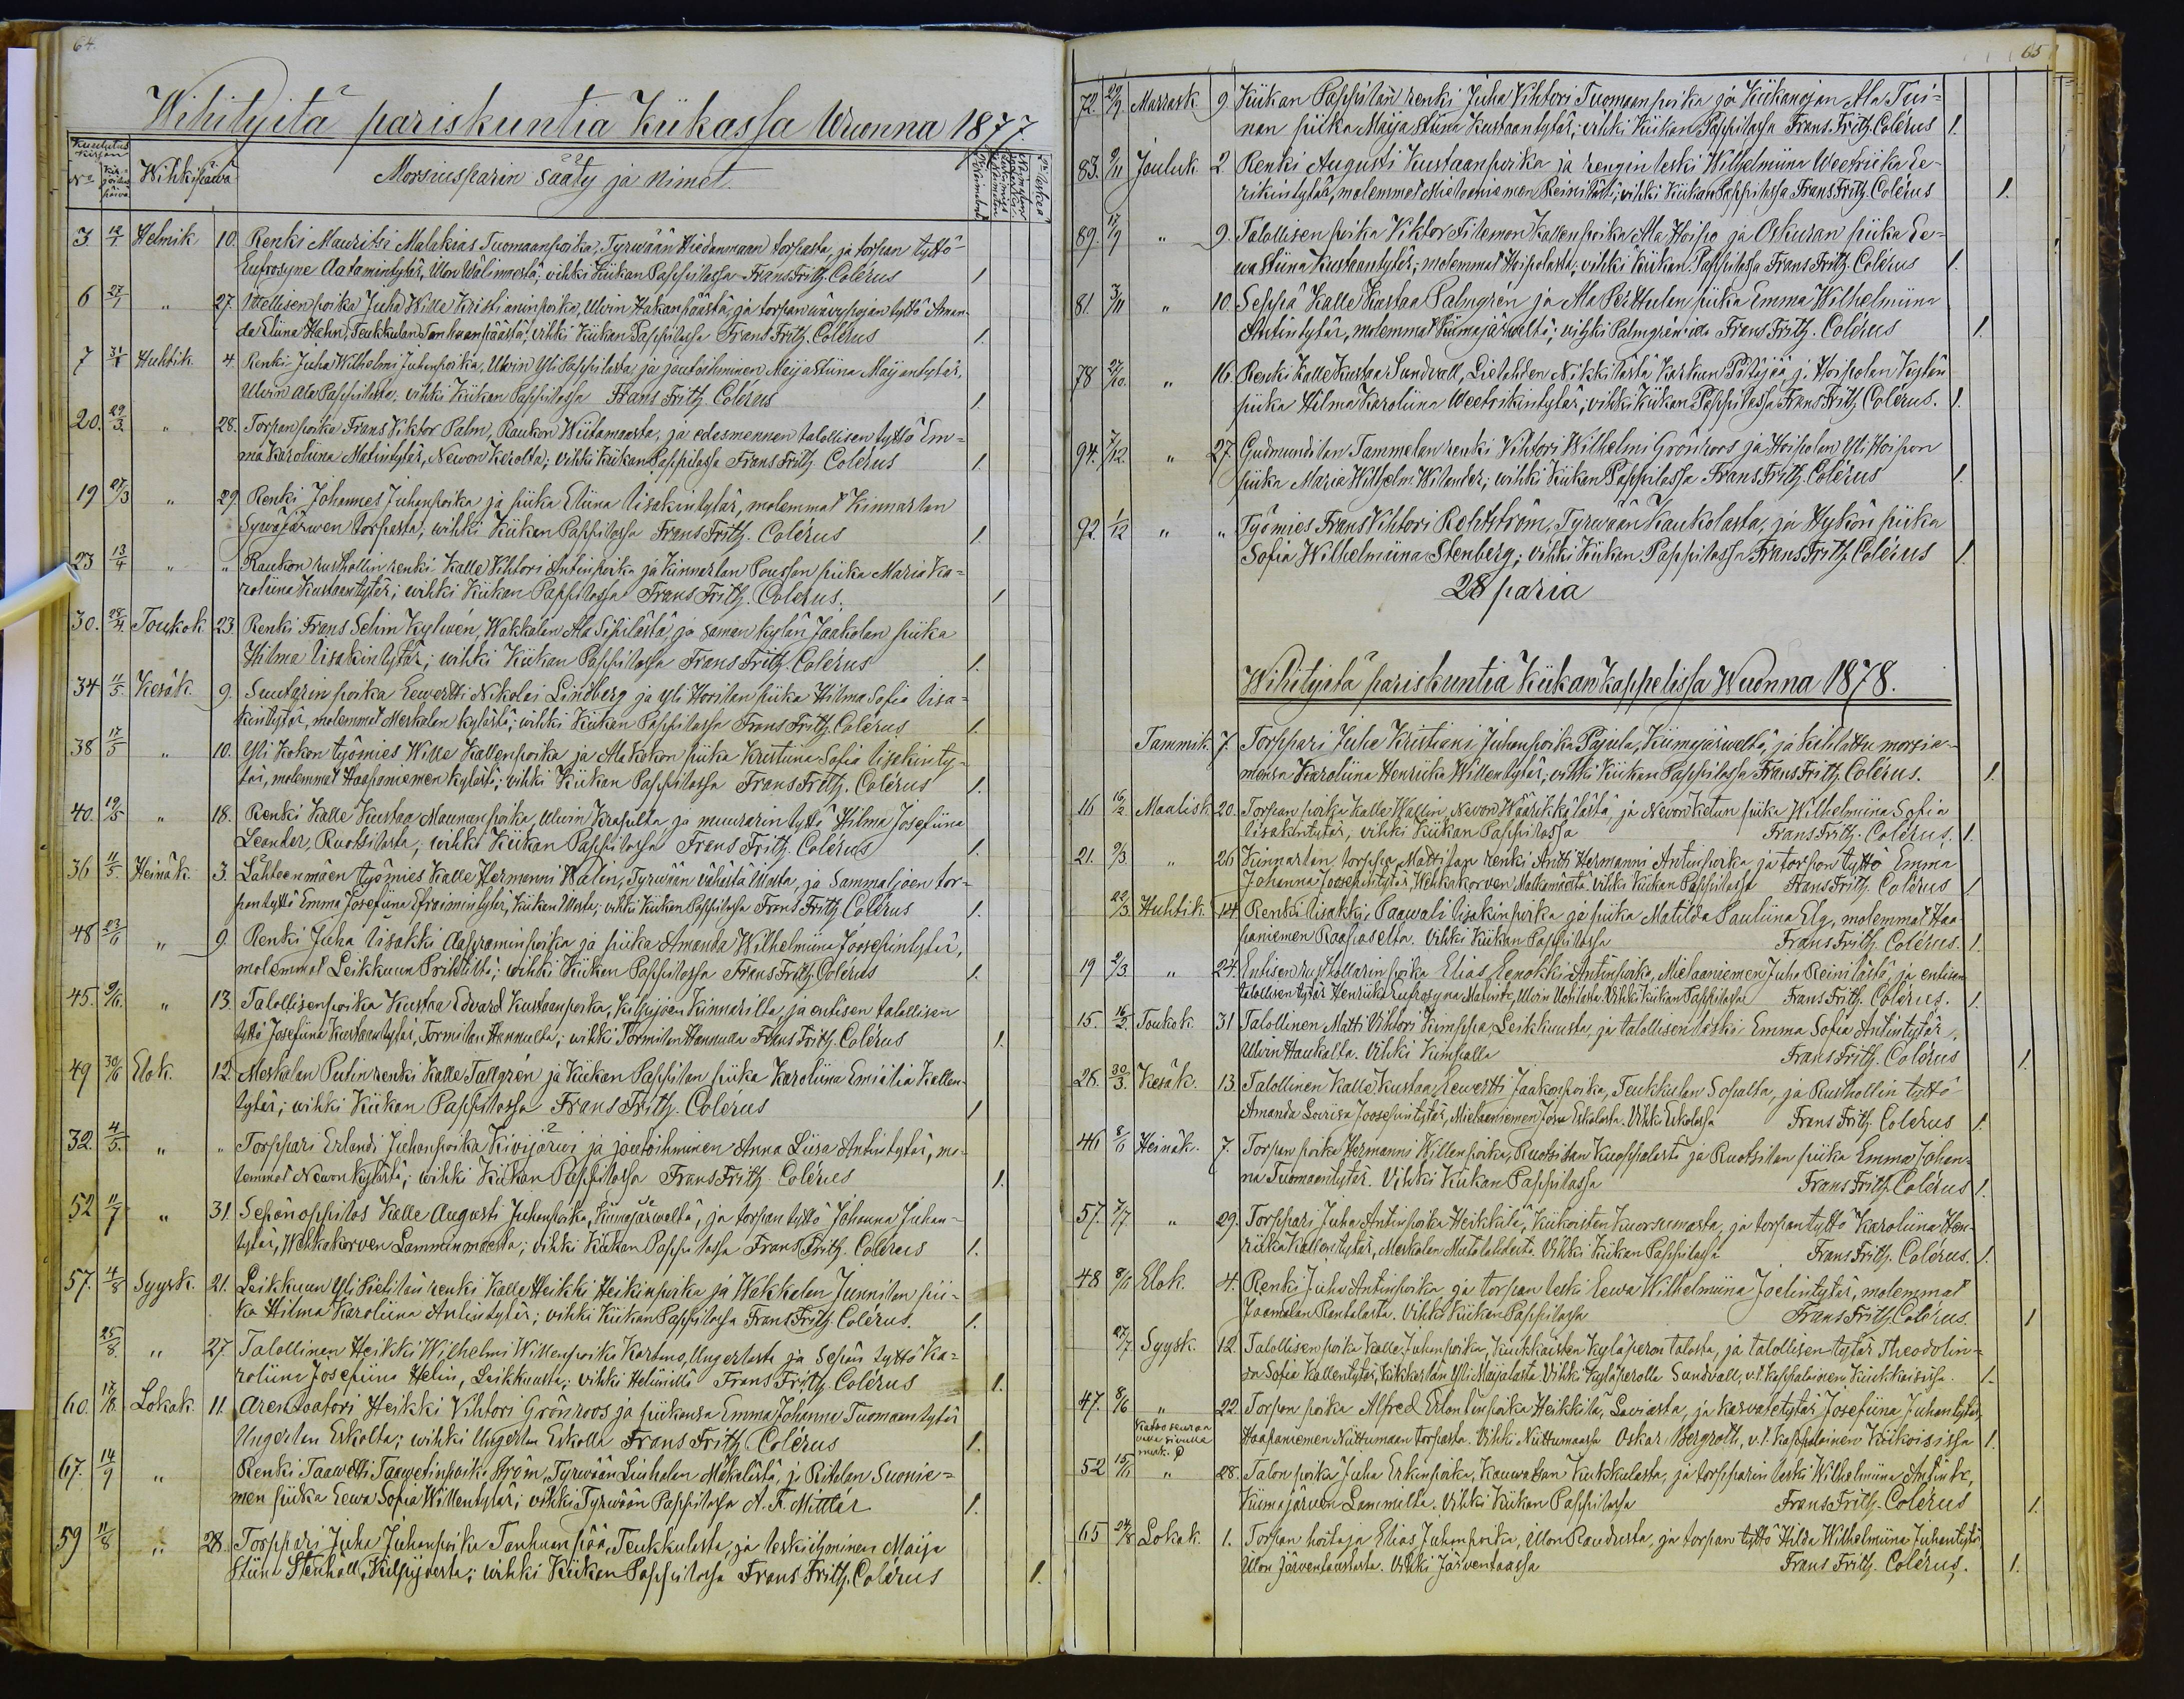 64.
Wihityitä pariskuntia Kiikassa Wuonna 1877
Kuulutus Kirjan
No Kirjoitus päivä Wihkipäivä Morsiusparin Sääty ja Nimet.
3 12/1 Helmik 10. Renki Mauritsi Malakias Tuomaanpoika, Tyrwään Hiedanmaan torpasta, ja torpan tyttö
Eufrosyne Aatamintytär, Ulon Wälimestä; vihki Kiikan Pappilassa Frans Fritz. Colérus 1
6 27/1 " 27. Ittellisen poika Juha Wille Kristianinpoika, Ulvin Hakanpäästä, ja torpan vävypojan tyttö Aman-
da Eliina Hahn, Teukkulan Tanhuanpäästä; vihki Kiikan Pappilassa Frans Fritz. Colérus 1.
7 31/1 Huhtik. 4 Renki Juha Wilhelmi Juhanpoika, Ulvin Yli Pappilasta ja joutoihminen Maijastiina Maijantytär,
Ulvin Ala Pappilasta. vihki Kiikan Pappilassa Frans Fritz. Colérus 1.
20. 29/3 " 28. Torpanpoika Frans Viktor Palm, Raukon Wiitamaasta, ja edesmennen talollisen tyttö Em=
ma Karoliina Matintytär, Newon Kerolta; vihki Kiikan Pappilassa Frans Fritz. Colérus 1.
19 27/3 " 29. Renki Johannes Juhanpoika ja piika Eliina Iisakintytär, molemmat Kinnarlan
Sywäjärwen torpasta, wihki Kiikan Pappilassa Frans Fritz. Colérus 1
23 13/4 " " Raukon rusthollin renki Kalle Vihtori Antinpoika ja Kinnarlan Poussan piika Maria Ka=
roliina Kustaantytär; wihki Kiikan Pappilassa Frans Fritz. Colérus. 1
30. 28/4 Toukok 23. Renki Frans Selim Kylwén, Wakkalan Ala Sipilästä, ja saman kylän Jaakolan piika
Hilma Iisakintytär; wihki Kiikan Pappilassa Frans Fritz. Colérus 1.
34 11/5 Kesäk. 9. Suutarin poika Eewertti Nikolai Lindberg ja Yli Hoositan piika Hilma Sofia Iisa=
kintytär, molemmat Meskalan kylästä; wihki Kiikan Pappilassa Frans Fritz. Colérus 1.
38 17/5 " 10. Yli Kokon työmies Wille Kallenpoika ja Ala Kokon piika Kristiina Sofia Iisakinty=
tär, molemmat Haapaniemen kylästä; vihki Kiikan Pappilassa Frans Fritz. Colérus 1.
40. 19/5 " 18. Renki Kalle Kustaa Maununpoika, Ulvin Krapulta ja muurarin tyttö Hilma Josefiina
Leander, Ruotsilasta; wihki Kiikan Pappilassa Frans Fritz. Colérus 1.
36 11/5. Heinäk. 3. Lähteenmäen työmies Kalle Hermanni Walin, Tyrwään vähästä Ulosta, ja Sammaljoen tor-
pantyttö Emma Josefiina Efraimintytär, Kiikan Ulosta; vihki Kiikan Pappilassa Frans Fritz. Colérus 1.
48 23/6 " 9 Renki Juha Iisakki Aapraminpoika ja piika Amanda Wilhelmiina Joosepintytär,
molemmat Leikkuun Prihtiltä; wihki Kiikan Pappilassa Frans Fritz Colérus 1.
45. 9/6. " 13. Talollisenpoika Kustaa Edvard Kustaanpoika, Kilpijoen Kinnarilta, ja entisen talollisen
tyttö Josefiina Kustaantytär, Tormilan Hannulta; wihki Tormilan Hannulla Frans Fritz. Colérus 1.
49 30/6 Elok. 12. Meskalan Putin renki Kalle Tallgrén ja Kiikan Pappilan piika Karoliina Emialia Kallen-
tytär; wihki Kiikan Pappilassa Frans Fritz. Colérus 1
32. 4/5. " " Torppari Erlandi Juhanpoika Kivijärwi ja joutoihminen Anna Liisa Antintytär, mo-
lemmat Newon kylästä; wihki Kiikan Pappilassa Frans Fritz. Colérus 1.
52 11/7 " 31. Sepänoppilas Kalle Augusti Juhanpoika, Kiimajärweltä, ja torpan tyttö Johanna Juhan-
tytär, Wehkakorven Lamminmaasta; vihki Kiikan Pappilassa Frans Fritz. Colérus 1.
57. 4/8 Syysk. 21. Leikkuun Yli Pietilän renki Kalle Heikki Heikinpoika ja Wakkalan Junnilan pii-
ka Hilma Karoliina Antintytär; vihki Kiikan Pappilassa Frans Fritz. Colérus. 1.
25/8. " 27 Talollinen Heikki Wilhelmi Willenpoika Karhno, Ungerlasta ja Sepän tyttö Ka=
roliina Josefiina Helin, Leikkuusta; vihki Helinillä Frans Fritz Colérus 1.
60. 17/8. Lokak. 11. Arentaatori Heikki Vihtori Grönroos ja piikansa Emma Johanna Tuomaantytär
Ungerlan Eskolta; wihki Ungerlan Eskolla Frans Fritz. Colérus 1.
67. 14/9 " Renki Taawetti Taawetinpoika Ström, Tyrwään Liuhalan Mäkelästä, ja Rihlan Suonie=
men piika Eewa Sofia Willentytär; vihki Tyrwään Pappilassa A. F. Mittlér 1.
59 11/8 " 28. Torppari Juha Juhanpoika Tanhuanpää, Teukkulasta, ja leskiihminen Maija
Stiina Stenhäll, Kilpijoesta; wihki Kiikan Pappilassa Frans Fritz. Colérus 1.
65
72. 29/9. Marrask. 9. Kiikan Pappilan renki Juha Vihtori Tuomaanpoika ja Kiikanojan Ala Tui=
nan piika Maija Stiina Kustaantytär; vihki Kiikan Pappilassa Frans Fritz. Colérus 1.
83. 9/11 Jouluk. 2 Renki Augusti Kustaanpoika ja rengin leski Wilhelmiina Weetriika Ee-
rikintytär, molemmat Mietaaniemen Reinilästä; vihki Kiikan Pappilassa Frans Fritz Colérus 1.
89. 17/9 " 9. Talollisen poika Viktor Filemon Kallenpoika Ala Hoipo ja Oskuran piika Ee-
wa Stiina Kustaantytär; molemmat Hoipolasta; vihki Kiikan Pappilassa Frans Fritz Colérus 1.
81. 3/11 " 10. Seppä Kalle Kustaa Palmgrén ja Ala Perttulan piika Emma Wilhelmiina
Antintytär, molemmat Kiimajärweltä; vihki Palmgrénillä Frans Fritz. Colérus 1.
78 27/10. " 16. Renki Kalle Kustaa Sundvall, Lielahden Nikkilästä Karkun Pitäjää j. Hoipolan Vigtin
piika Hilma Karoliina Weetrikintytär; vihki Kiikan Pappilassa Frans Fritz Colérus. 1.
94. 7/12. " 27. Gudmundilan Tammelan renki Vihtori Wilhelmi Grönroos ja Hoipolan Yli Hoipon
piika Maria Wilhelm. Witander; wihki Kiikan Pappilassa Frans Fritz. Colérus 1.
92. 1/12 " " Työmies Frans Vihtori Rehtström, Tyrwään Kaukolasta, ja Hykön piika
Sofia Wilhelmiina Stenberg; vihki Kiikan Pappilassa Frans Fritz. Colérus 1.
28 paria
Wihityitä pariskuntia Kiikan kappelissa Wuonna 1878.
Tammik. 7. Torppari Juha Kristiani Juhanpoika Pajula, Kiimajärweltä, ja kihlattu morsia-
mensa Karoliina Henriika Willentytär; vihki Kiikan Pappilassa Frans Fritz. Colérus. 1.
16 16/2 Maalisk. 20. Torpan poika Kalle Wallin, Nevon Wäärikkälästä, ja Nevon Ketun piika Wilhelmiina Sofia
Iisakintytär, vihki Kiikan Pappilassa Frans Fritz. Colérus. 1.
21. 9/3. " 26 Kinnarlan torppa Mattilan renki Antti Hermanni Antinpoika, ja torpan tyttö Emma
Johanna Joosepintytär, Wehkakorven Matkamäeltä. Vihki Kiikan Pappilassa Frans Fritz. Colérus 1
22/3 Huhtik. 14. Renki Iisakki Paawali Iisakinpoika ja piika Matilda Pauliina Elg, molemmat Haa-
paniemen Raapaselta. Vihki Kiikan Pappilassa Frans Fritz Colérus. 1.
19 2/3 " 24. Entisen rusthollarin poika Elias Eenokki Antinpoika, Mietaaniemen Juha Reinilästä, ja entisen
talollisen tytär Henriika Eufrosyna Matintr, Ulvin Uotilasta. Vihki Kiikan Pappilassa Frans Fritz. Colérus. 1.
15. 16/2. Toukok. 31 Talollinen Matti Vihtori Kimppa, Leikkuusta, ja talollisen leski Emma Sofia Antintytär,
Ulvin Haukalta. Vihki Kimpalla Frans Fritz. Colérus 1.
28. 30/3. Kesäk. 13. Talollinen Kalle Kustaa Eewertti Jaakonpoika, Teukkulan Sopalta, ja Rusthollin tyttö
Amanda Loviisa Joosepintytär, Mietaaniemen Eskolasta. Vihki Eskolassa Frans Fritz Colérus 1.
46 8/6 Heinäk. 7. Torpan poika Hermanni Willenpoika, Ruotsilan Kuoppalasta ja Ruotsilan piika Emma Johan-
na Tuomaantytär. Vihki Kiikan Pappilassa Frans Fritz. Colérus 1.
57. 7/7 " 29. Torppari Juha Antinpoika Heikkilä, Kiikoisten Kuorsumasta, ja torpan tyttö Karoliina Hen-
riika Kallentytär, Meskalan Mutalahdesta. Vihki Kiikan Pappilassa Frans Fritz. Colérus. 1.
48 8/6 Elok. 4. Renki Juha Antinpoika ja torpan leski Eewa Wilhelmiina Joelintytär, molemmat
Jaamalan Rantalasta. Vihki Kiikan Pappilassa Frans Fritz Colérus. 1
27/7 Syysk. 12. Talollisen poika Kalle Juhanpoika, Kiukkaisten Kyläperon talosta, ja talollisen tytär Theodolin-
da Sofia Kallentytär, Kikkerlän Yli Maijalasta Vihki Kyläperolla Sundvall, v.t. Kappalainen Kiukkaisissa. 1.
47. 8/6 " 22. Torpan poika Alfred Erlantinpoika Heikkilä, Laviasta, ja kasvatetytär Josefiina Juhantytär,
Haapaniemen Niittumaan torpasta. Vihki Niittumaassa Oskar Bergroth, v.t. kappalainen Kiikoisissa 1.
Katso seuraavalla sivulla merk. P
52 15/6 " 28. Talon poika Juha Erkinpoika, Kauvatsan Kukkulasta, ja torpparin leski Wilhelmiina Antintr,
Kiimajärven Lammilta. Vihki Kiikan Pappilassa Frans Fritz. Colérus 1.
65 24/8 Lokak. 1. Torpan hoitaja Elias Juhanpoika, Ulon Raudusta, ja torpan tyttö Hilda Wilhelmiina Juhantytär
Ulon Järventaustasta. Vihki Järventaassa Frans Fritz. Colérus. 1.